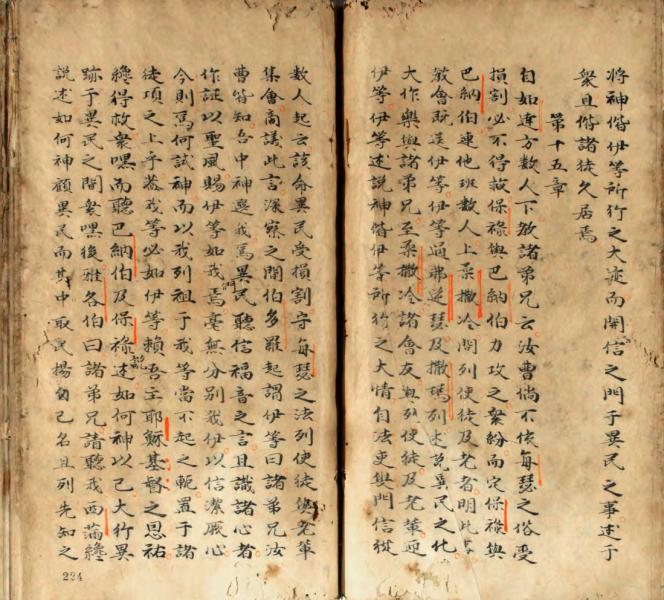 將神偕伊等所行之大迹而開信之門于異民之事述于
衆且偕諸徒久居焉
第十五章
自如達方數人下教諸弟兄云汝曹倘不依每瑟之俗受
損割必不得救保祿與巴納伯力攻之衆紛而定保祿與
巴納伯連他班數人上柔撒冷問列使徒及老者明此
教會既送伊等伊等過弗尼瑟及撒瑪列述説異民之化
大作樂與諸弟兄至柔撒冷諸會友與列使徒及老輩迎
伊等伊等述説神偕伊等所行之大情自法吏與門信從
數人起云該命異民受損割守每瑟之法列使徒與老輩
集會商議此言深察之間伯多羅起謂伊等曰諸弟兄汝
曹皆知吾中神選我爲異民聽信福音之言且識諸心者
作証以聖風賜伊等如我焉毫無分別我伊以信潔厥心
今則爲何試神而以我列祖于我等當不起之軛置于諸
徒項之上乎蓋我等必如伊等賴吾主耶穌基督之恩祐
纔得救衆嘿而聽巴納伯及保祿述如何神以己大行異
跡于異民之間衆嘿後雅各伯曰諸弟兄請聽我西滿纔
説述如何神顧異民而其中取民揚自己名且列先知之
224